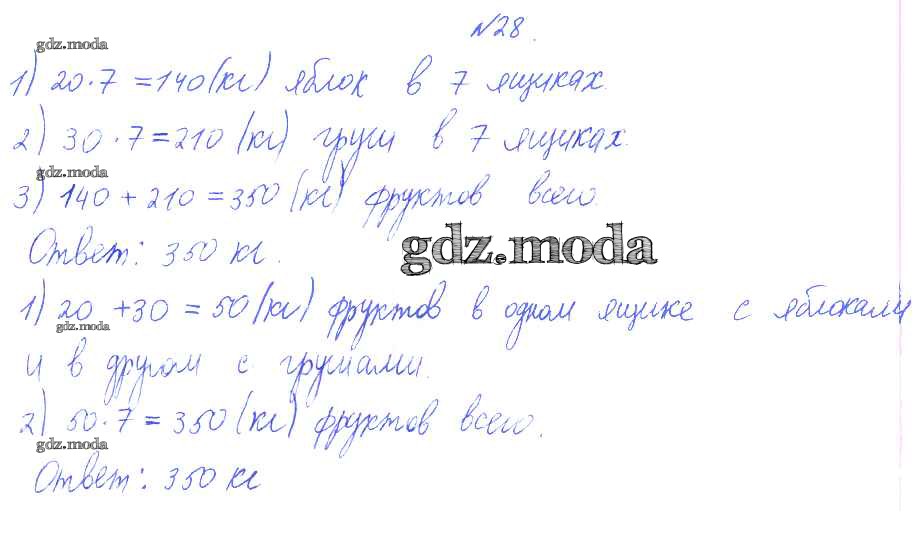 №28.
gdz.moda
1) 20·7=140(кг) яблок в 7 ящиках.
2) 30·7=210 (кг) груш в 7 ящиках.
gdz.moda
3) 140+210=350(кг) фруктов всего.
Ответ: 350 кг.
gdz.moda
1) 20 +30 = 50(кг) фруктов в одном ящике с яблоками
gdz.moda
и в другом с грушами.
2) 50·7=350(кг) фруктов всего.
gdz.moda
Ответ: 350 кг